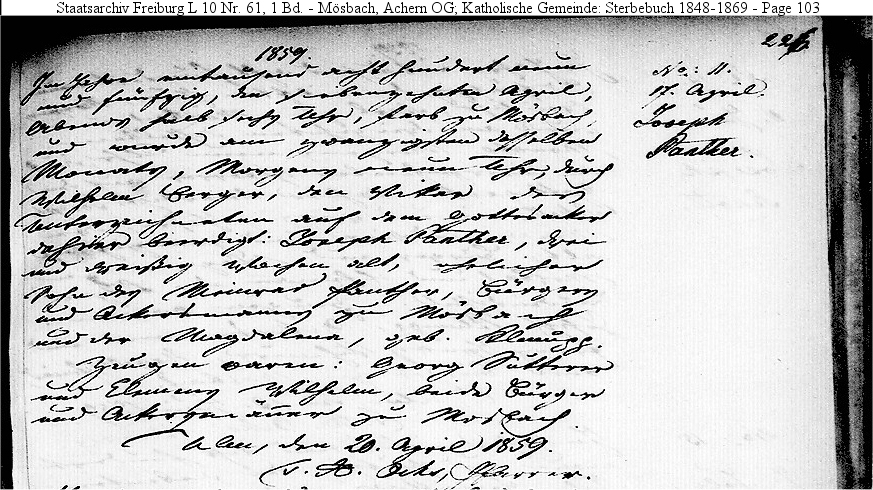 Staatsarchiv Freiburg L 10 Nr. 61, 1 Bd. - Mösbach, Achern OG; Katholische Gemeinde: Sterbebuch 1848-1869 - Page 103
1859.
Im Jahre eintausend acht hundert neun
und fünfzig, den siebenzehnten April,
Abends halb sechs Uhr, starb zu Mösbach,
und wurde am zwanzigsten desselben
Monats, Morgens neun Uhr, durch
Wilhelm Berger, den Vikar des
Unterzeichneten auf dem Gottesacker
dahier beerdigt: Joseph Panther, drei
und dreißig Wochen alt, ehelicher
Sohn des Meinrad Panther, Bürgers
und Ackersmanns zu Mösbach
und der Magdalena, geb.
Zeugen waren: Georg Sutterer
und Clemens Wilhelm, beide Bürger
und Ackersmänner zu Mösbach.
Ulm, den 20. April 1859.
Pfarrer.
No: 11.
17. April.
Joseph
Panther.